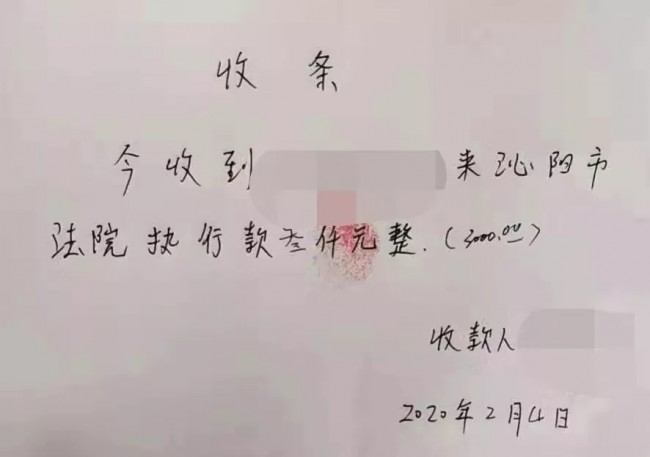 收条
今收到 来沁阳市
法院执行款叁仟元整.(3000.00)
收款人
2020年2月4日